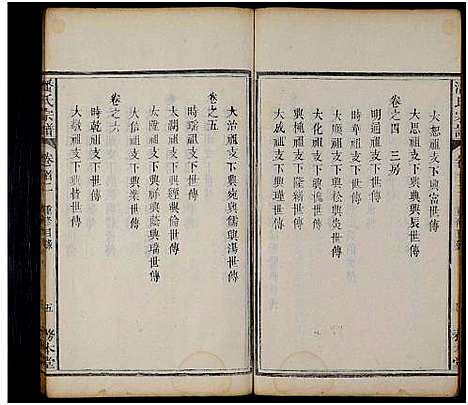 大恕祖支下興富世傳
大思祖支下興典興辰世傳
卷之四 三房
明通祖支下世傳
時華祖支下隆緒世傳
大順祖支下松興長世傳
大化祖支下興世傳
大成祖支下興瑾世傳
卷之五
大治祖支下興宛興儒興湯世傳
時瑤祖支下世傳
大湖祖支下興經興倫世傳
大隆祖支下興祥興蔭興瑞世傳
大信祖支下興業世傳
卷之六
時乾祖支下世傳
大敏祖支下興哲世傳
潘氏宗譜
卷首二
重修目錄
五
務本堂